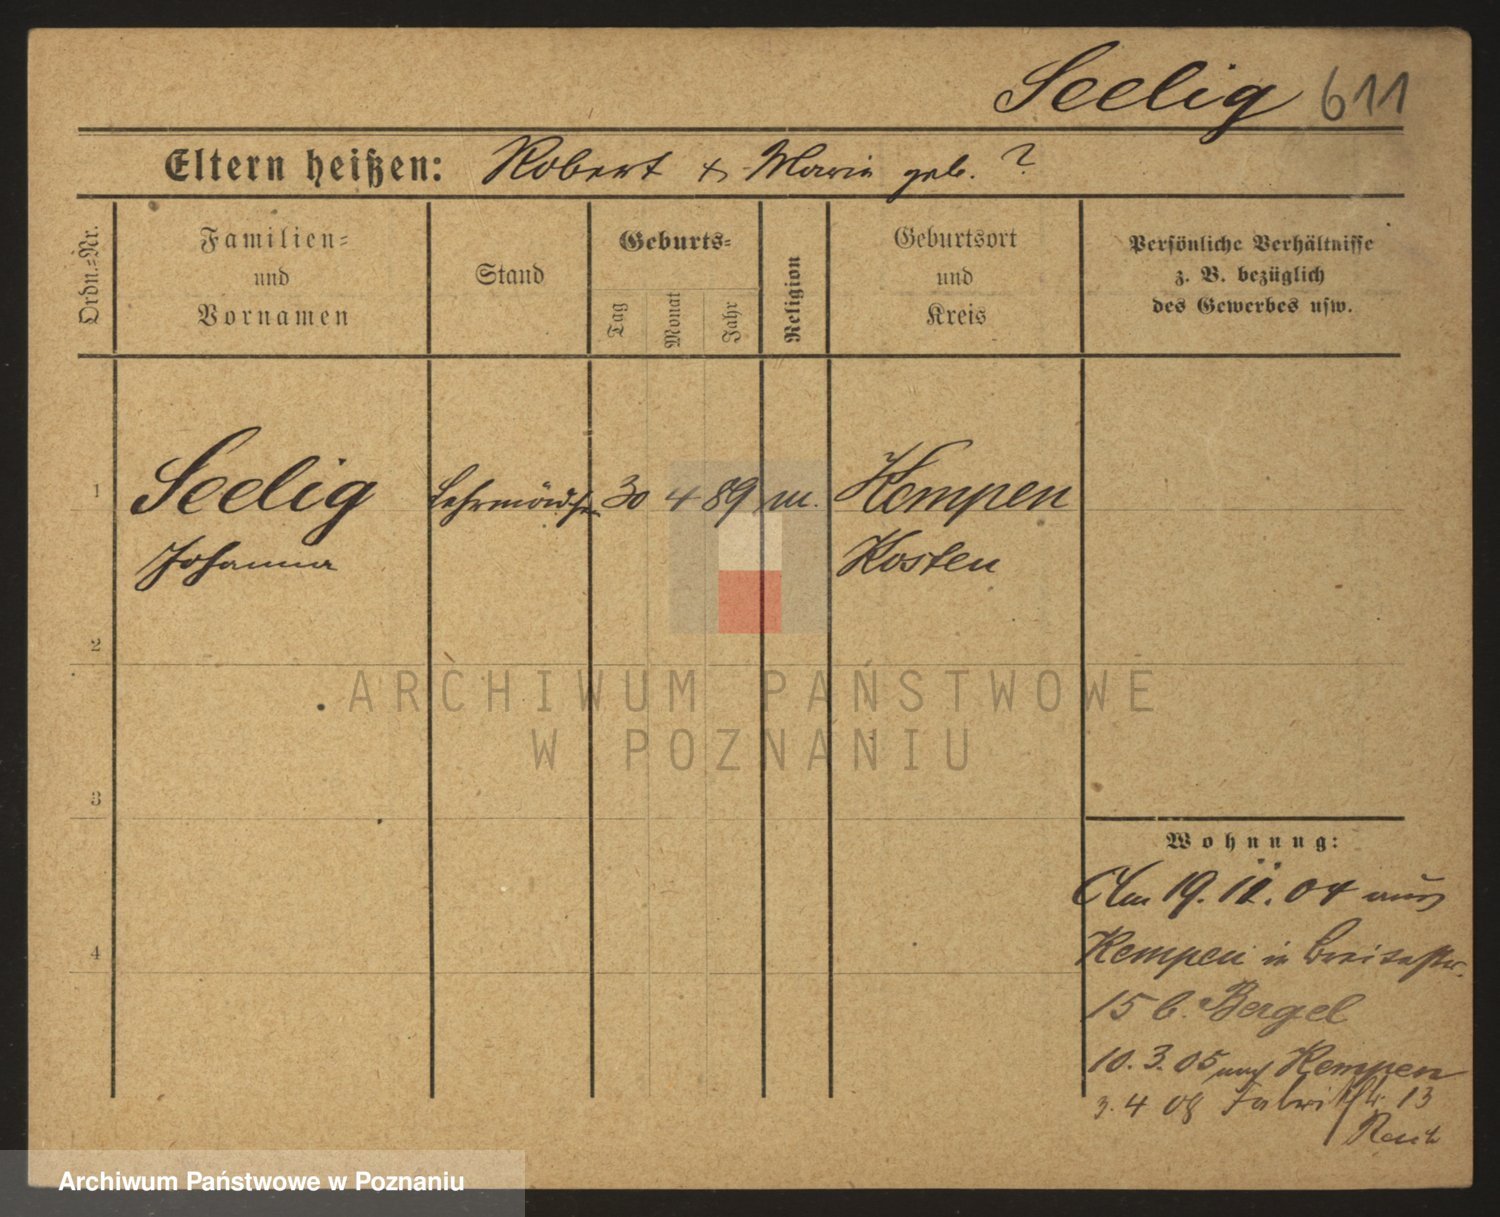 Seelig 611
Eltern heißen: Robert & Marie geb. ?
Ordn.=Nr.
Familien=
und
Vornamen
Stand
Geburts=
Tag
Monat
Jahr
Religion
Geburtsort
und
Kreis
Persönliche Verhältnisse
z. B. bezüglich
des Gewerbes usw.
1 Seelig Lehrmädchen 30 4 89 m. Kempen
Johanna Kosten
2
3
4
Wohnung:
Am 19. 11. 04 aus
Kempen in Breitestr.
15 b. Bergel
10. 3. 05 nach Kempen
3. 4 08 Fabrikstr. 13
ARCHIWUM PAŃSTWOWE
W POZNANIU
Archiwum Państwowe w Poznaniu